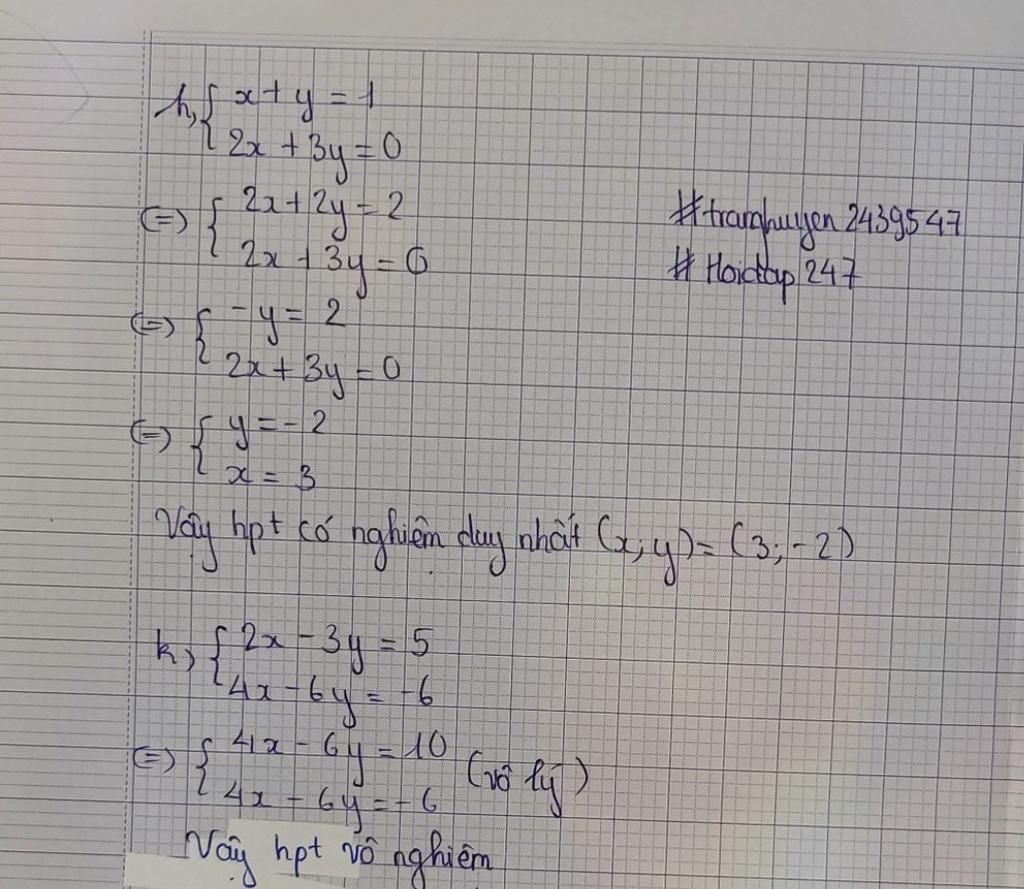 h, { x + y = 1
2x + 3y = 0
(=) { 2x + 2y = 2
2x + 3y = 0
#tranghuyen2439547
# Hoidap 247
(=) { -y = 2
2x + 3y = 0
(=) { y = -2
x = 3
Vậy hpt có nghiệm duy nhất (x; y) = (3; -2)
k) { 2x - 3y = 5
4x - 6y = -6
(=) { 4x - 6y = 10
4x - 6y = -6
(vô lý)
Vậy hpt vô nghiệm